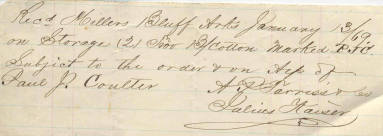 Recd Millers Bluff Arks January 13/69
on Storage (2) Two B/Cotton marked P.J.C.
Subject to the order & on a/c of
Paul J. Coulter
Julius Kaiser